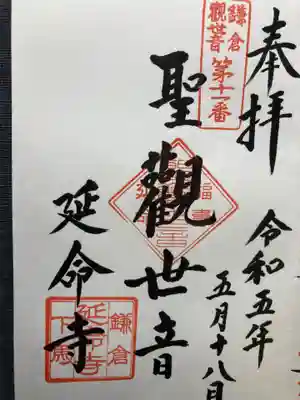 奉拝
令和五年
五月十八日
鎌倉
觀世音
第十一番
聖觀世音
延命寺
鎌倉
延命寺